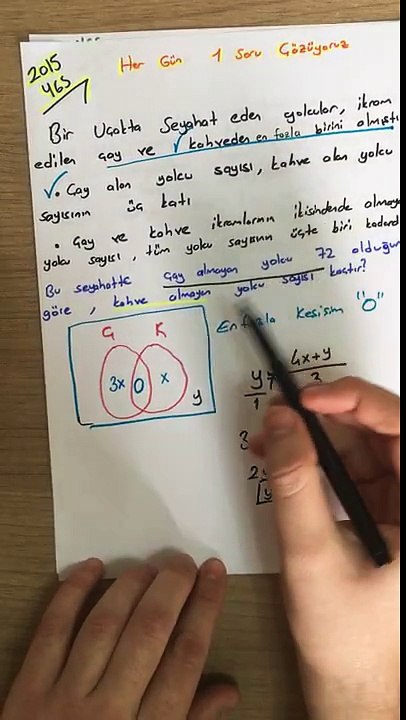 Her Gün 1 Soru Çözüyoruz
2015
YGS
Bir Uçakta Seyahat eden yolcular, ikram
edilen çay ve kahveden en fazla birini almıştı
• Çay alan yolcu sayısı, kahve alan yolcu
sayısının üç katı
• Çay ve kahve ikramlarının ikisinden de almaya
yolcu sayısı, tüm yolcu sayısının üçte biri kadard
Bu seyahatte çay almayan yolcu 72 olduğun
göre, kahve almayan yolcu sayısı kaçtır?
En fazla kesişim "0"
Ç K
3x 0 x
y
y 4x+y
1 3
3
2y
y